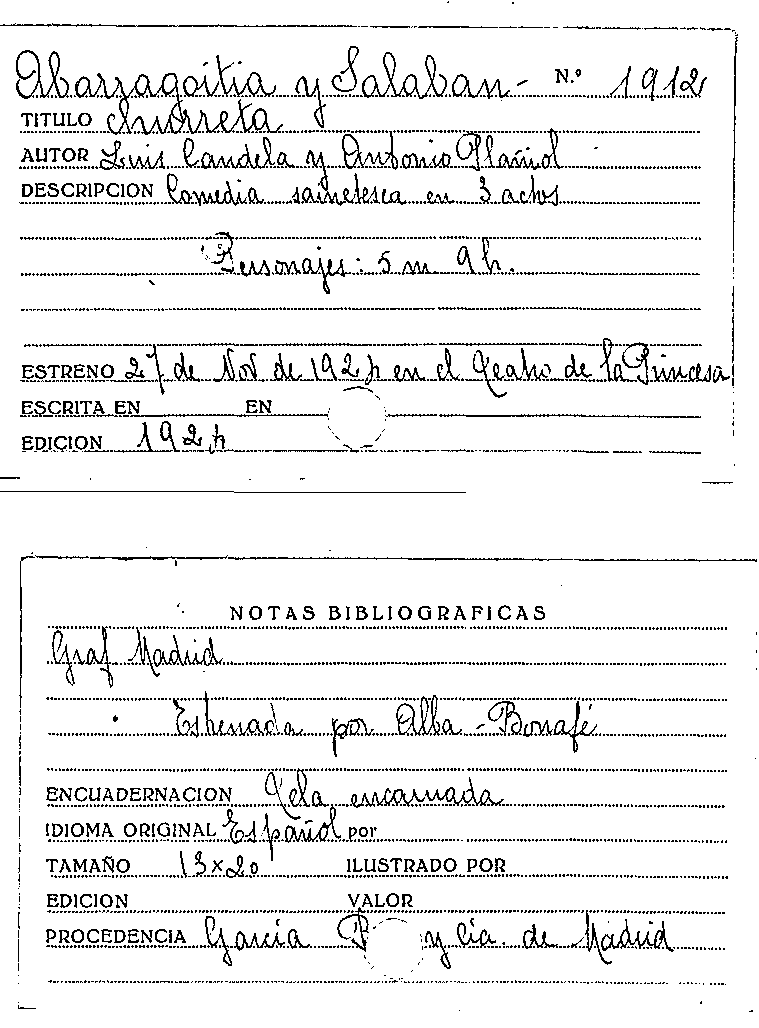 Abarzagoitia y Salaban - N.º 1912
TITULO Churreta
AUTOR Luis Candela y Antonio Plañiol
DESCRIPCION Comedia sainetesca en 3 actos
Personajes: 5 m 9 h.
ESTRENO 27 de Nov de 1924 en el Teatro de la Princesa
ESCRITA EN EN
EDICION 1924
NOTAS BIBLIOGRAFICAS
Graf Madrid
Estrenada por Alba - Bonafé
ENCUADERNACION Tela encarnada
IDIOMA ORIGINAL Español por
TAMAÑO 13x20 ILUSTRADO POR
EDICION VALOR
PROCEDENCIA García y Cía. de Madrid